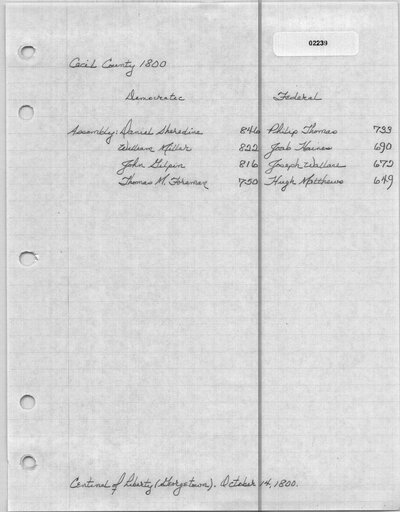 02239
Cecil County 1800
Democratic Federal
Assembly: Daniel Sheredine 846 Philip Thomas 733
William Miller 822 Joab Haines 690
John Gilpin 816 Joseph Wallace 672
Thomas M. Foreman 750 Hugh Matthews 649
Centinel of Liberty (Georgetown). October 14, 1800.